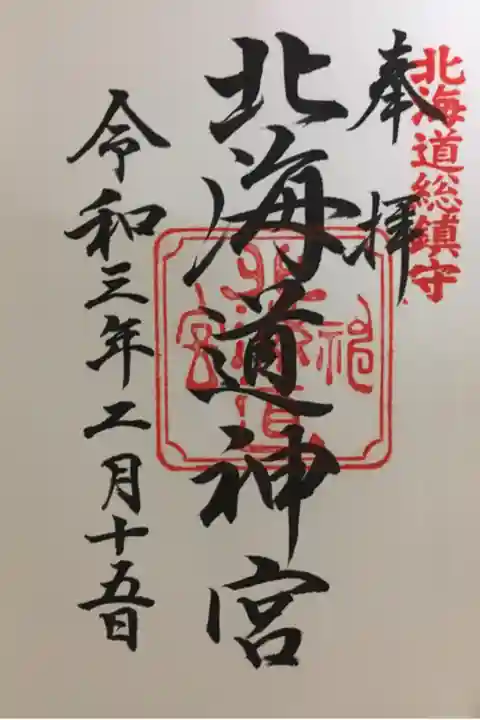 北海道総鎮守
奉拝
北海道神宮
北海道神宮
令和三年二月十五日